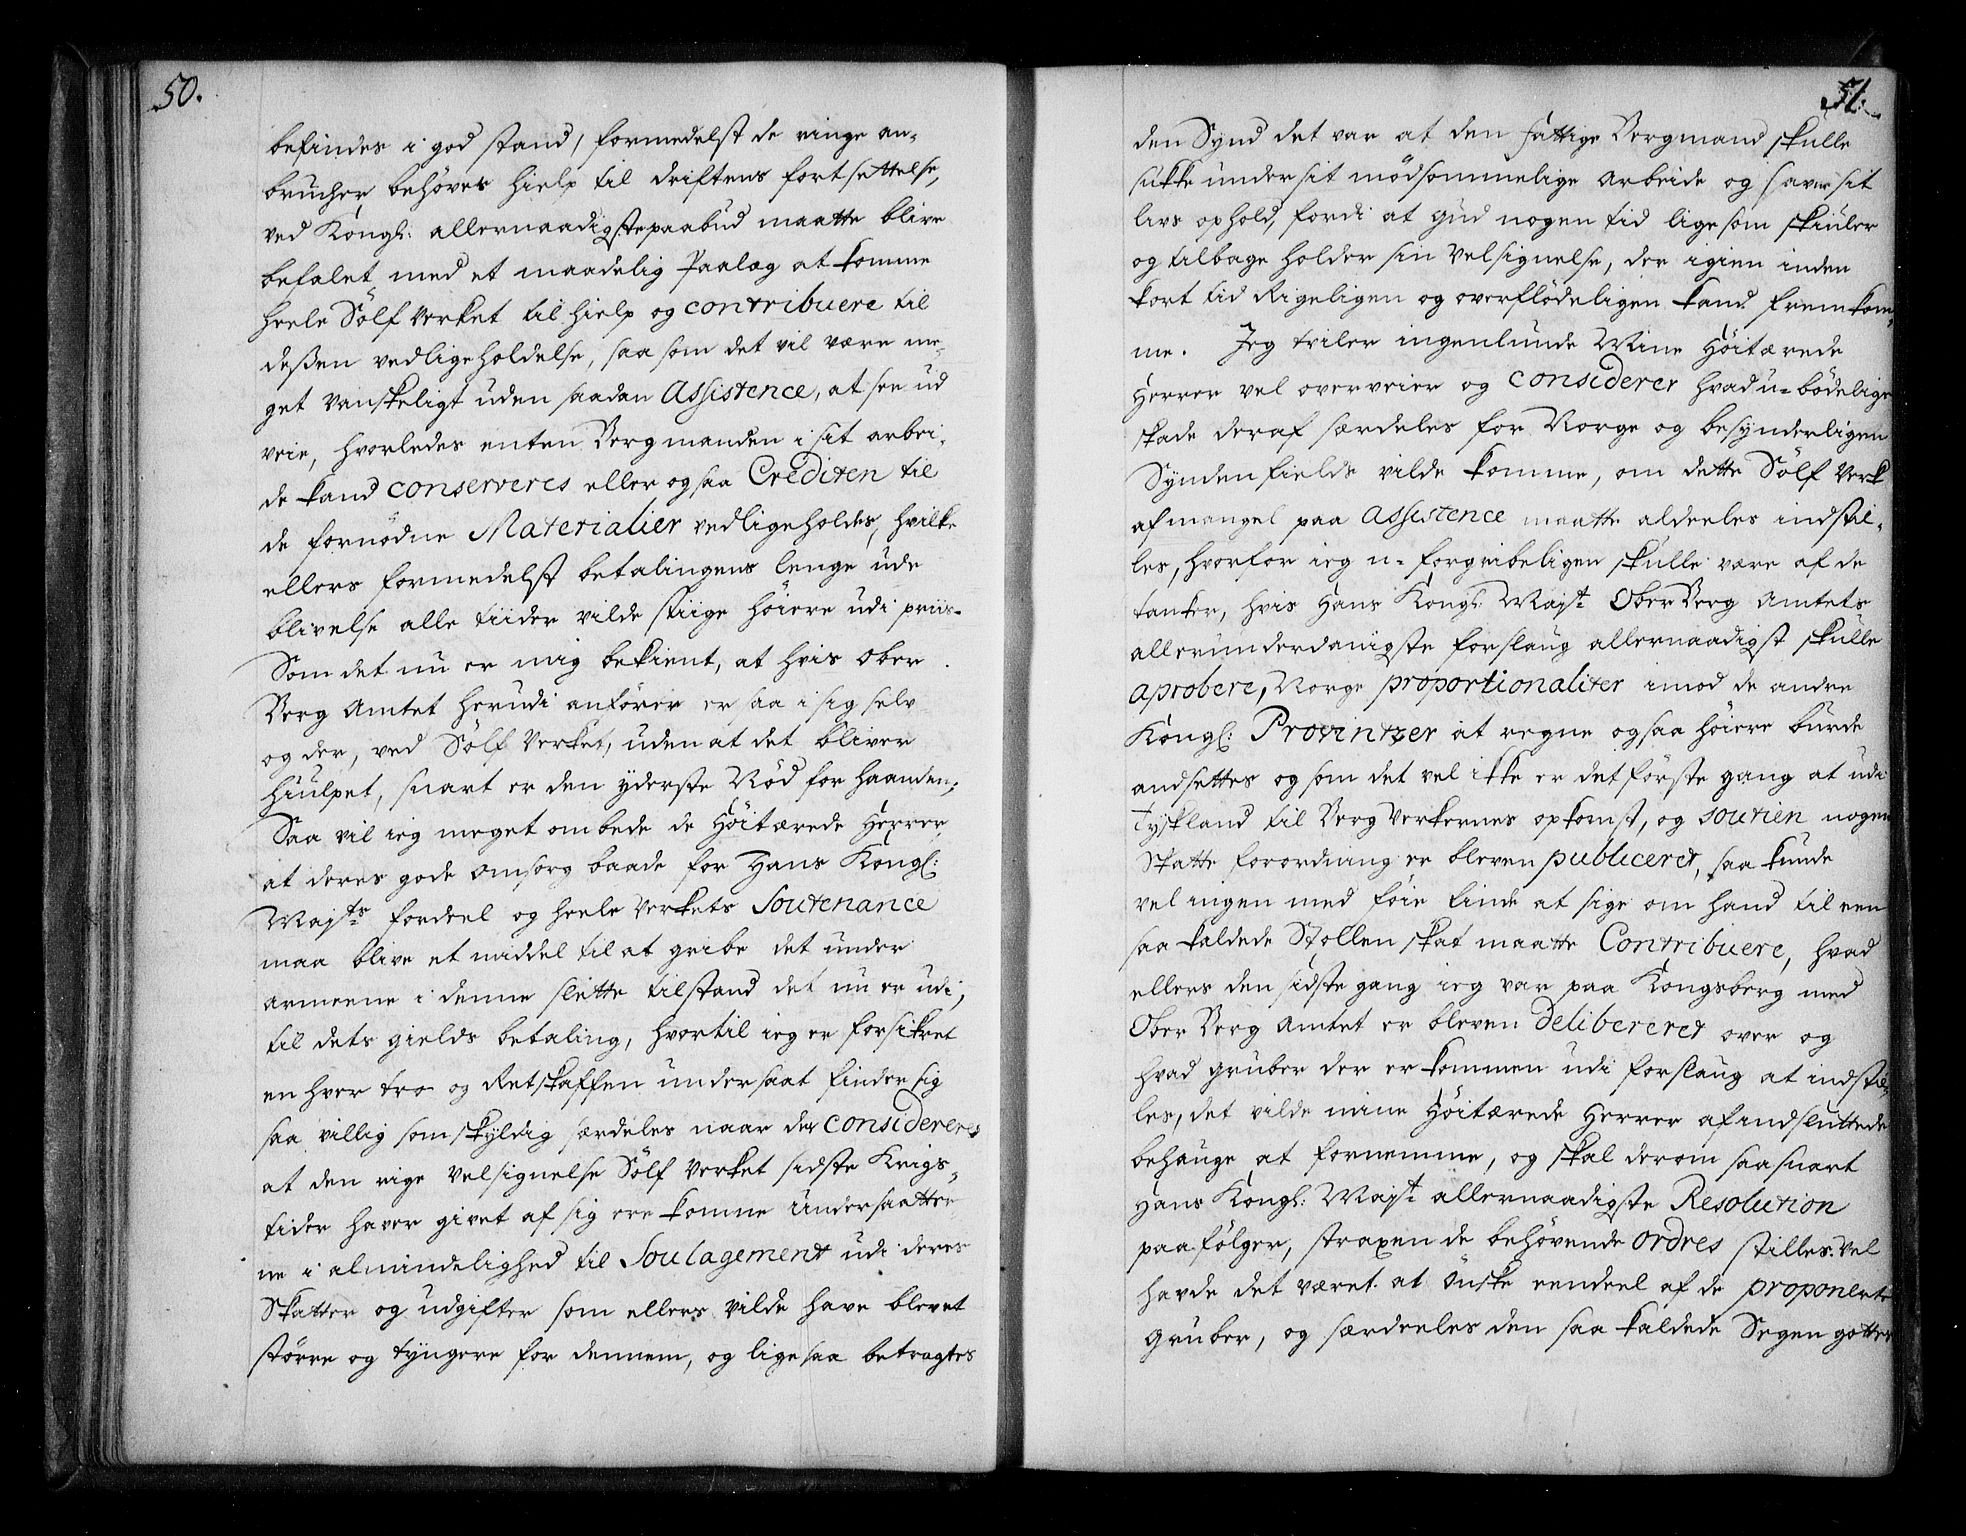 50.
befindes i god stand, formedelst de ringe an-
brücher behöves hielp til driftens fortsættelse,
ved Kongl: allernaadigste paabud maatte blive
befalet med et maadelig Paalæg at komme
heele Sölf Verket til hielp og contribuere til
deßen vedligeholdelse, saa som det vil være me-
get vanskeligt uden saadan Assistence, at see ud
veie, hvorledes enten Bergmanden i sit arbei-
de kand conserveres eller ogsaa Crediten til
de fornödne Materialier vedligeholdes, hvilke
ellers formedelst betalingens lenge ude
blivelse alle tiider vilde stiige höiere udi priis.
Som det nu er mig bekient, at hvis Ober
Berg Amtet herudi anförer er saa i sig selv
og der, ved Sölf Verket, uden at det bliver
hiulpet, snart er den yderste Nöd for haanden;
Saa vil ieg meget ombede de Höitærede Herrer,
at deres gode omsorg baade for Hans Kongl:
Mayts fordeel og heele Verkets Soutenance
maa blive et middel til at gribe det under
armene i denne slette tilstand det nu er udi,
til dets gields betaling, hvortil ieg er forsikret
en hver tro og Retskaffen undersaat finder sig
saa villig som skyldig særdeles naar der consideres
at den rige Velsignelse Sölf Verket sidste Krigs-
tider haver givet af sig ere komne Undersaatter-
ne i almindelighed til Soulagement udi deres
Skatter og udgifter som ellers vilde have blevet
större og tyngere for dennem, og lige saa betragtes
51.
den Synd det var at den fattige Bergmand skulle
sukke under sit mödsommelige Arbeide og savne sit
livs ophold, fordi at Gud nogen tid lige som skiuler
og tilbage holder sin Velsignelse, der igien inden
kort tid Rigeligen og overflödeligen kand fremkom-
me. Jeg tviler ingenlunde Mine Höitærede
Herrer vel overveier og considerer hvad u-bödelige
skade deraf særdeles for Norge og besynderligen
Synden fields vilde komme, om dette Sölf Verk
af mangel paa Assistence maatte aldeeles indstil-
les, hvorfor ieg u-forgribeligen skulle være af de
tanker, hvis Hans Kongl: Mayt Ober Berg Amtets
allerunderdanigste forslaug allernaadigst skulle
aprobere, Norge proportionaliter imod de andre
Kongl: Provintzer at regne ogsaa höiere burde
andsettes og som det vel ikke er det förste gang at udi
Tyskland til Berg Verkernes opkomst, og soutien nogen
Skatte forordning er bleven publiceret, saa kunde
vel ingen med föie finde at sige om hand til een
saa kaldede Stollen skat maatte Contribuere, hvad
ellers den sidste gang ieg var paa Kongsberg med
Ober Berg Amtet er bleven delibereret over og
hvad gruber der er kommen udi forslaug at indstil-
les, det vilde mine Höitærede Herrer af indsluttede
behauge at fornemme, og skal derom saa snart
Hans Kongl: Mayt allernaadigste Resolution
paafölger, straxen de behövende Ordres stilles. Vel
havde det været at önske eendeel af de proponerte
Gruber, og særdeeles den saa kaldede Segen gottes